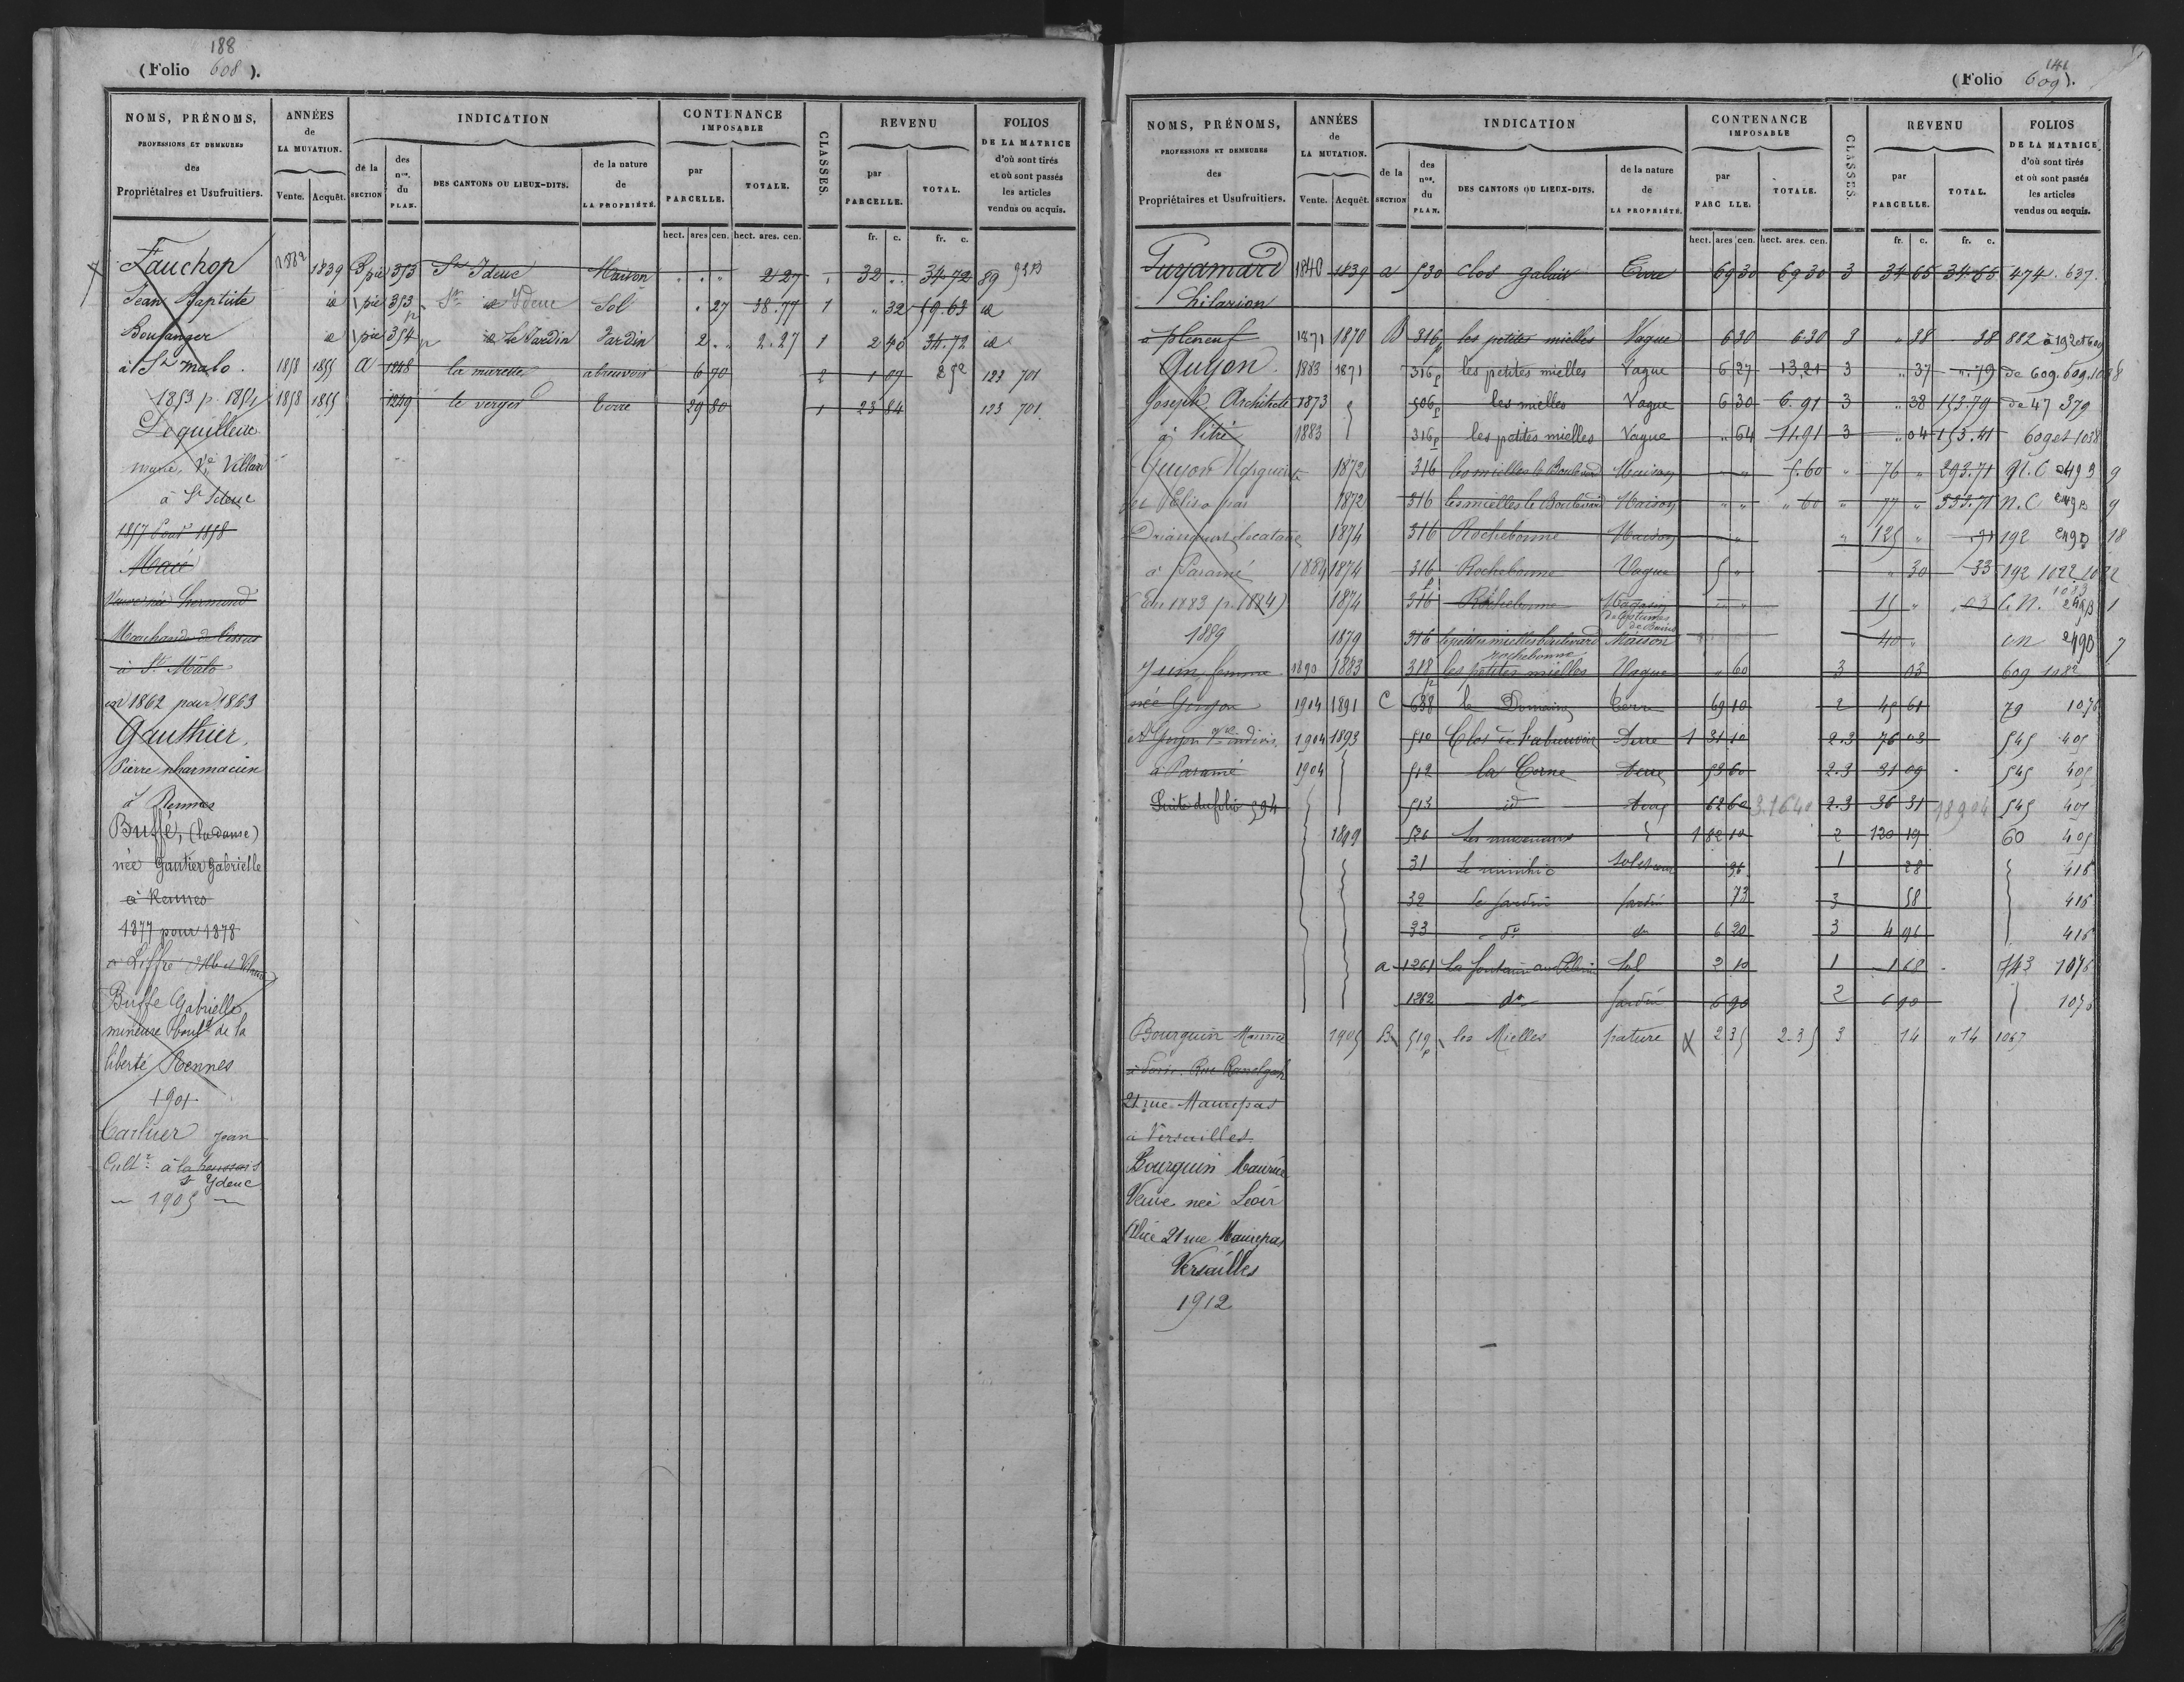 188
(Folio 608).
NOMS, PRÉNOMS,
PROFESSIONS ET DEMEURES
des
Propriétaires et Usufruitiers.
ANNÉES
de
LA MUTATION.
Vente. Acquêt.
INDICATION
de la
SECTION
des
nos.
du
PLAN.
DES CANTONS OU LIEUX-DITS.
de la nature
de
LA PROPRIÉTÉ.
CONTENANCE
IMPOSABLE
par
PARCELLE.
TOTALE.
CLASSES.
REVENU
par
PARCELLE.
TOTAL.
FOLIOS
DE LA MATRICE
d'où sont tirés
et où sont passés
les articles
vendus ou acquis.
hect. ares cen. hect. ares. cen. fr. c. fr. c.
Fauchon 1882 1839 B pie 353 St Ideuc Maison 2 27 32 34.72 89
Jean Baptiste id pie 353 p St Ydeuc Sol 27 38.77 1 32 59.63 id
Boulanger id pie 354 p id Le Jardin Jardin 2 2.27 1 2 40 34.72 id
à St malo. 1858 1855 A 1248 la murette abreuvoir 6 70 2 1 07 123 701
1853 p. 1854 1858 1855 1249 le verger terre 29 80 1 23 84 123 701
Villan
à St Ideuc
1857 Pour 1858
Macé
Marchande de
à St Malo
en 1862 pour 1863
Gauthier,
Pierre pharmacien
à Rennes
Buffé, (la dame)
née Gautier Gabrielle
à Rennes
1877 pour 1878
à Liffré
Buffe Gabrielle
mineure boulᵈ de la
liberté Rennes
1901
Carluer Jean
Cultr à la
St Ydeuc
1905
141
(Folio 609).
NOMS, PRÉNOMS,
PROFESSIONS ET DEMEURES
des
Propriétaires et Usufruitiers.
ANNÉES
de
LA MUTATION.
Vente. Acquêt.
INDICATION
de la
SECTION
des
nos.
du
PLAN.
DES CANTONS OU LIEUX-DITS.
de la nature
de
LA PROPRIÉTÉ.
CONTENANCE
IMPOSABLE
par
PARC LLE.
TOTALE.
CLASSES.
REVENU
par
PARCELLE.
TOTAL.
FOLIOS
DE LA MATRICE
d'où sont tirés
et où sont passés
les articles
vendus ou acquis.
hect. ares cen. hect. ares. cen. fr. c. fr. c.
1840 1839 a 530 clos galais Terre 69 30 69 30 3 34 65 34.65 474. 637.
hilarion
à pleneuf 1871 1870 B 316p les petites mielles Vague 6 30 6.30 3 38 38 882
Guyon. 1883 1871 316p les petites mielles Vague 6 27 13,21 3 37 .79 de 609.
Joseph, Architecte 1873 506p les mielles Vague 6 30 6.91 3 38 153.79 de 47 379
à Vitré 1883 316p les petites mielles Vague 64 11.91 3 04 153.41 609 et 1038
Guyon 1872 316 les mielles le Boulevard Maison 5.60 76 293.71
1872 316 les mielles le Boulevard Maison 60 77 533.71 N.C.
1874 316 Rochebonne Maison 125 192 18
à Paramé 1884 1874 316 p Rochebonne Vague 5 30 33 192 1022
(En 1883 p. 1884) 1874 316 Rochebonne Magasin de Costumes de Bains 15 03 C.N. 1
1889 1879 316 les petites mielles boulevard rochebonne Maison 40 cn 7
femme 1890 1883 318 p les petites mielles Vague 60 3 03 609 1082
née Guyon 1904 1891 C 638 le Domaine terre 69 10 2 45 61 79 1076
indivis 1904 1893 510 Clos de l'abreuvoir Terre 1 31 10 2.3 76 03 545 405
à Paramé 1904 512 la Corne terre 53 60 2.3 31 09 545 405
Suite du folio 594 513 id terre 62 60 3.1640 2.3 36 31 98904 545 405
1899 526 1 82 10 2 120 19 60 405
31 Le minihic sol et cour 36 1 28 416
32 le Jardin Jardin 73 3 58 416
33 do do 6 20 3 4 96 416
a 1261 la fontaine aux Pèlerins Sol 2 10 1 1 68 743 1076
1262 do Jardin 6 90 2 6 90 1076
Bourquin Maurice 1905 B 519p les Mielles pature X 2 35 2.35 3 14 14 1067
à Paris. Rue Ranelagh
21 rue Maurepas
à Versailles.
Bourquin Maurice
Veuve née Léoir
Alice 21 rue Maurepas
Versailles
1912